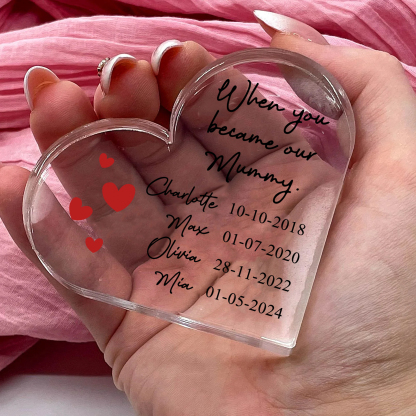 When you
became our
Mummy.
Charlotte 10-10-2018
Max 01-07-2020
Olivia 28-11-2022
Mia 01-05-2024